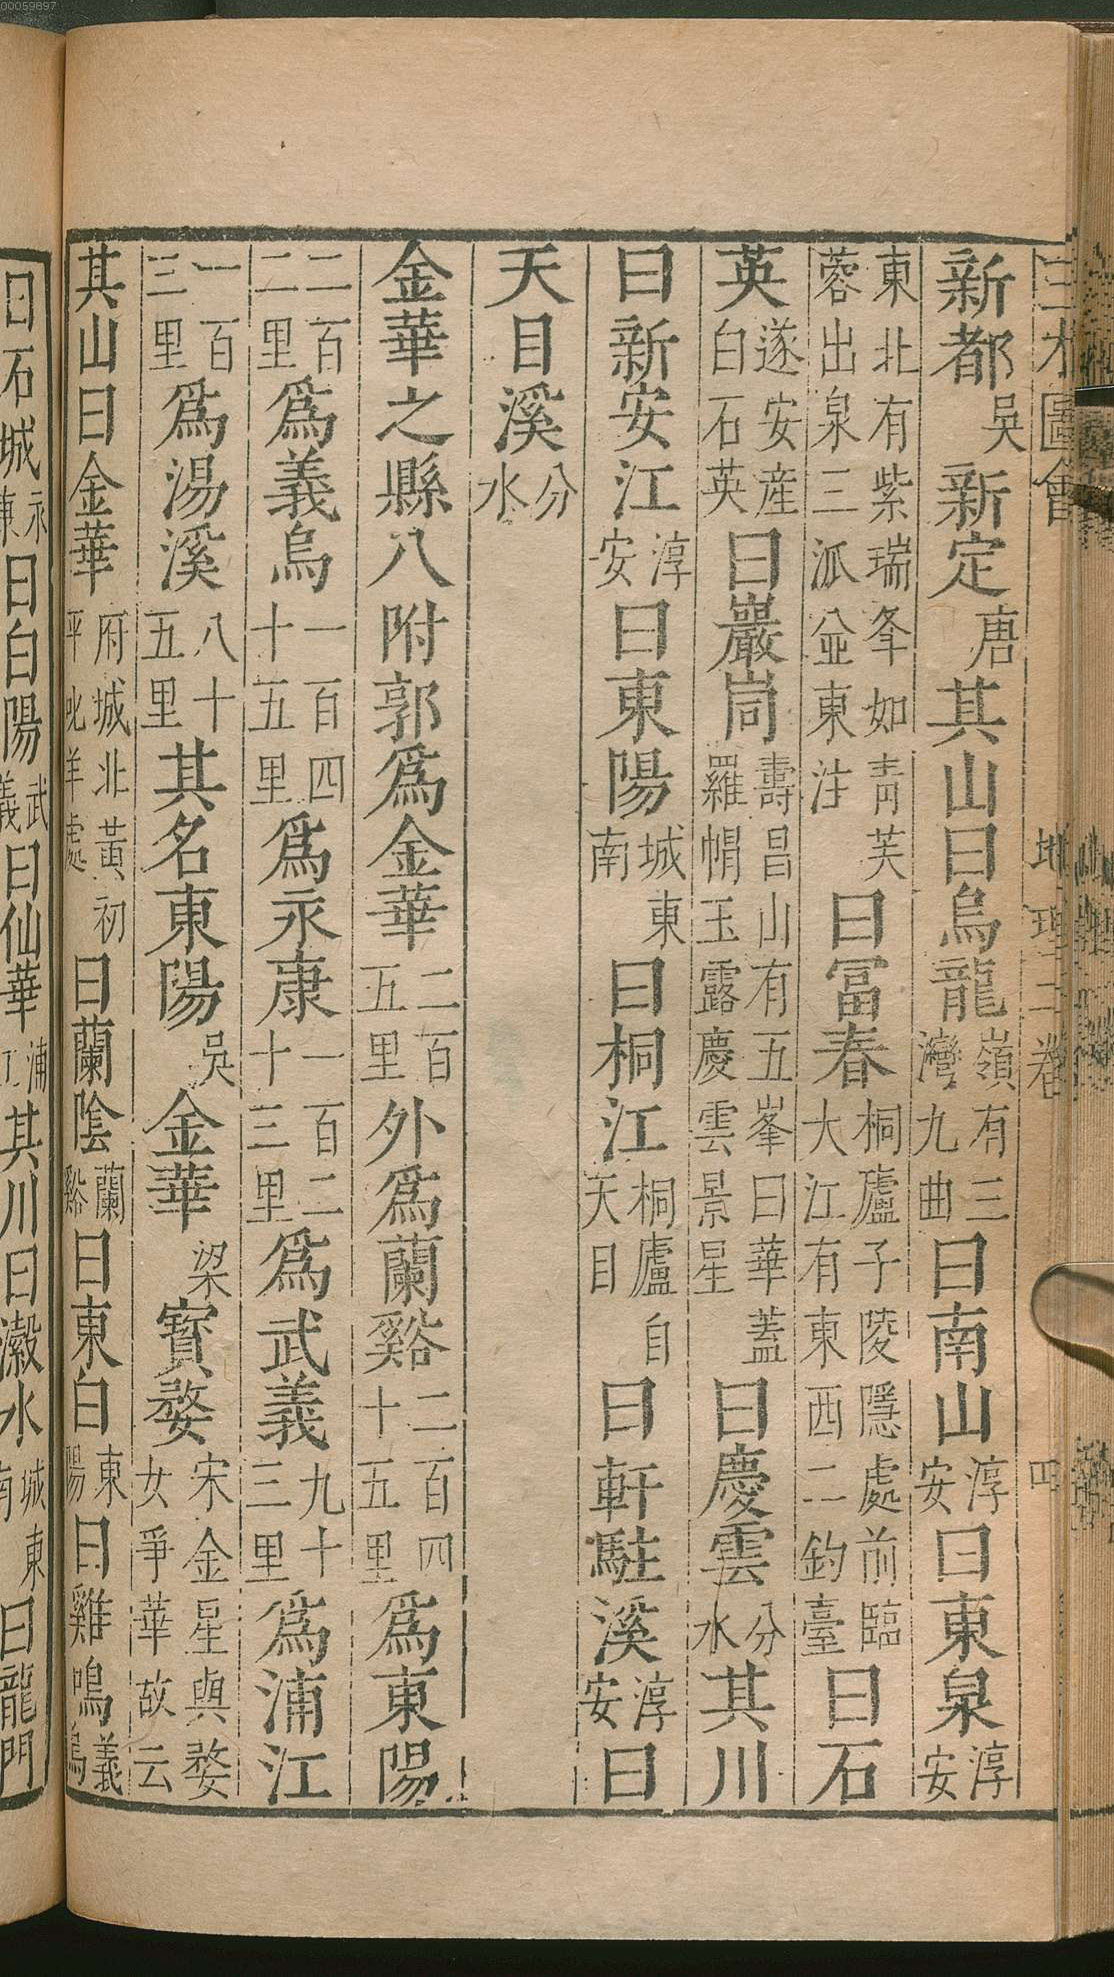 00059897
三才圖會 地理二卷 四
新都吳新定唐其山曰烏龍嶺有三灣九曲曰南山淳安曰東泉淳安
東北有紫瑞峯如靑芙蓉出泉三派並東注曰富春桐廬子陵隱處前臨大江有東西二釣臺曰石
英遂安産白石英曰巖峝壽昌山有五峯曰華蓋羅帽玉露慶雲景星曰慶雲分水其川
曰新安江淳安曰東陽城東南曰桐江桐廬自天目曰軒駐溪淳安曰
天目溪分水
金華之縣八附郭爲金華二百五里外爲蘭谿二百四十五里爲東陽
二百二里爲義烏一百四十五里爲永康一百二十三里爲武義九十三里爲浦江
一百三里爲湯溪八十五里其名東陽吳金華梁寳婺宋金星與婺女爭華故云
其山曰金華府城北黃初平叱羊處曰蘭陰蘭谿曰東白東陽曰雞鳴義烏
曰石城永東曰白陽武義曰仙華浦江其川曰瀔水城東南曰龍門